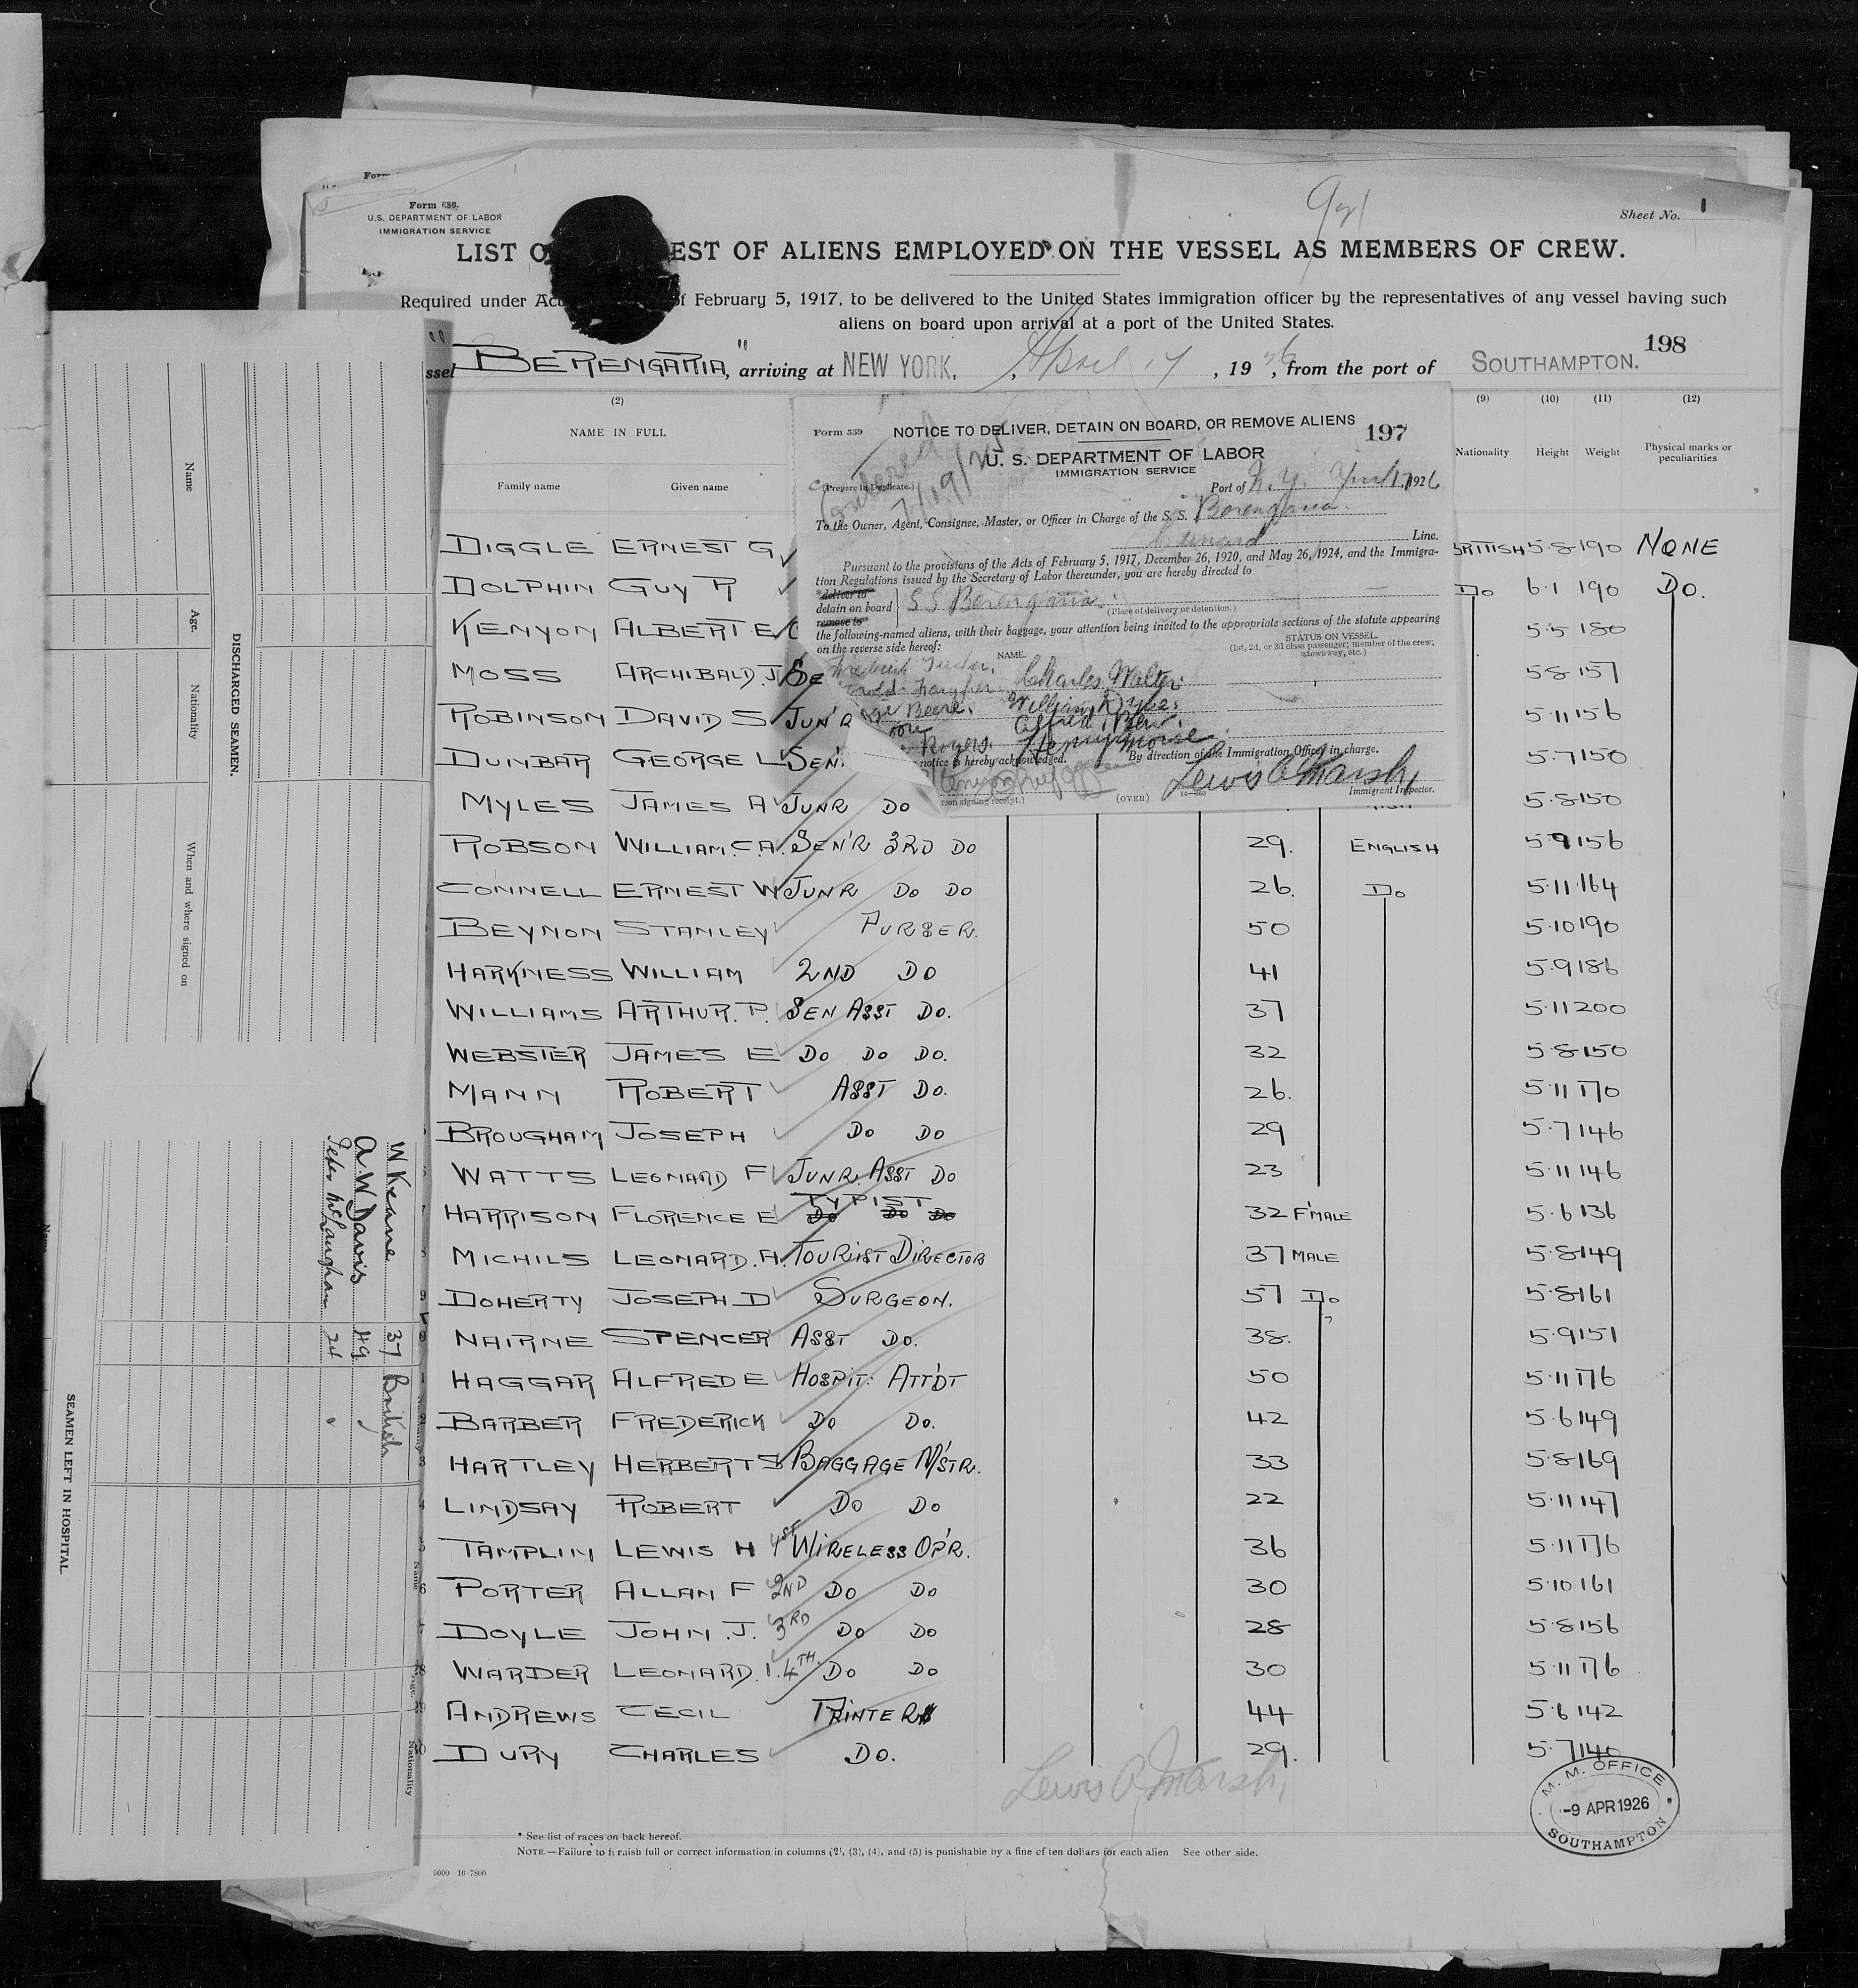 Form 680.
U.S. DEPARTMENT OF LABOR
IMMIGRATION SERVICE
Sheet No. 1
LIST O EST OF ALIENS EMPLOYED ON THE VESSEL AS MEMBERS OF CREW.
Required under Act of February 5, 1917, to be delivered to the United States immigration officer by the representatives of any vessel having such
aliens on board upon arrival at a port of the United States.
198
ssel "BERENGARIA", arriving at NEW YORK. , April 17 , 1926 , from the port of SOUTHAMPTON.
(2) (9) (10) (11) (12)
NAME IN FULL Nationality Height Weight Physical marks or peculiarities
Family name Given name
Form 559 NOTICE TO DELIVER, DETAIN ON BOARD, OR REMOVE ALIENS 197
U. S. DEPARTMENT OF LABOR
IMMIGRATION SERVICE
(Prepare in Duplicate.)
Port of N.Y. April 17, 1926
To the Owner, Agent, Consignee, Master, or Officer in Charge of the S. S. Berengaria.
Cunard Line.
Pursuant to the provisions of the Acts of February 5, 1917, December 26, 1920, and May 26, 1924, and the Immigra-
tion Regulations issued by the Secretary of Labor thereunder, you are hereby directed to
deliver to
detain on board S S Berengaria.
(Place of delivery or detention.)
remove to
the following-named aliens, with their baggage, your attention being invited to the appropriate sections of the statute appearing
on the reverse side hereof:
NAME. STATUS ON VESSEL
(1st, 2d, or 3d class passenger; member of the crew, stowaway, etc.)
Frederick
Charles Walter
Beere. William Dyke
Alfred
Rogers. Henry Morse
notice is hereby acknowledged. By direction of the Immigration Officer in charge.
Lewis A Marsh,
rson signing receipt.) (OVER) Immigrant Inspector.
DIGGLE ERNEST G BRITISH 5·8 190 NONE
DOLPHIN GUY R DO 6·1 190 DO.
KENYON ALBERT E 5·5 180
MOSS ARCHIBALD.J SE 5·8 157
ROBINSON DAVID S JUN'R 5·11 156
DUNBAR GEORGE L SEN. 5·7 150
MYLES JAMES A JUNR DO 5·8 150
ROBSON WILLIAM.C.A. SEN'R 3RD DO 29. ENGLISH 5·9 156
CONNELL ERNEST W JUNR DO DO 26. DO 5·11 164
BEYNON STANLEY PURSER. 50 5·10 190
HARKNESS WILLIAM 2ND DO 41 5·9 186
WILLIAMS ARTHUR.P. SEN ASST DO. 37 5·11 200
WEBSTER JAMES E DO DO DO. 32 5·8 150
MANN ROBERT ASST DO. 26. 5·11 170
BROUGHAM JOSEPH DO DO 29 5·7 146
WATTS LEONARD F JUNR. ASST DO 23 5·11 146
HARRISON FLORENCE E TYPIST DO DO DO 32 F'MALE 5·6 136
MICHILS LEONARD.A. TOURIST DIRECTOR 37 MALE 5·8 149
DOHERTY JOSEPH D SURGEON. 57 DO 5·8 161
NAIRNE SPENCER ASST DO. 38. 5·9 151
HAGGAR ALFRED E HOSPIT: ATT'DT 50 5·11 176
BARBER FREDERICK DO DO. 42 5·6 149
HARTLEY HERBERT S BAGGAGE M'STR. 33 5·8 169
LINDSAY ROBERT DO DO 22 5·11 147
TAMPLIN LEWIS H 1ST WIRELESS OP'R. 36 5·11 176
PORTER ALLAN F 2ND DO DO 30 5·10 161
DOYLE JOHN.J. 3RD DO DO 28 5·8 156
WARDER LEONARD.I. 4TH. DO DO 30 5·11 176
ANDREWS CECIL PRINTERS 44 5·6 142
DURY CHARLES DO. 29. 5·7 140
Lewis A Marsh,
M. M. OFFICE
-9 APR 1926
SOUTHAMPTON
* See list of races on back hereof.
NOTE.—Failure to furnish full or correct information in columns (2), (3), (4), and (5) is punishable by a fine of ten dollars for each alien See other side.
DISCHARGED SEAMEN.
Name Age. Nationality When and where signed on
SEAMEN LEFT IN HOSPITAL.
Name Age. Nationality
W Keane 37 British
A.W Davis 49
Peter McLaughlan 24